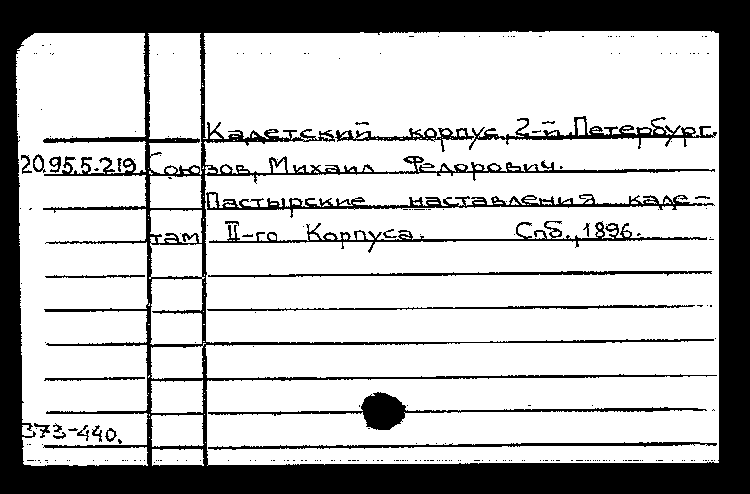 Кадетский корпус, 2-й. Петербург.
20.95.5.219. Союзов, Михаил Федорович.
Пастырские наставления каде-
там II-го Корпуса. Спб., 1896.
373-440.